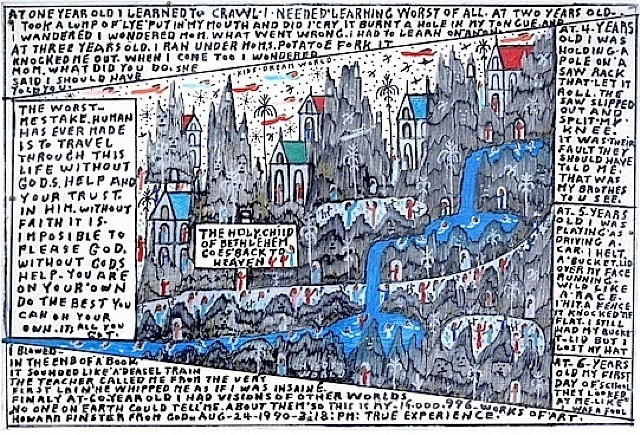 AT ONE YEAR OLD I LEARNED TO CRAWL. I NEEDED LEARNING WORST OF ALL. AT TWO YEARS OLD.
I TOOK A LUMP OF LYE PUT IN MY MOUTH AND DID I CRY. IT BURNT A HOLE IN MY TONGUE AND
WANDERED I WONDERED MOM. WHAT WENT WRONG. I HAD TO LEARN ON AN ON
AT THREE YEARS OLD. I RAN UNDER MOM,S. POTATOE FORK IT
KNOCKED ME OUT. WHEN I COME TOO I WONDERED
MOM, WHAT DID YOU DO. SHE
SAID I SHOULD HAVE
TOLD YOU.
KIDS DREAM WORLD.
THE WORST-
MESTAKE. HUMAN
HAS EVER MADE
IS TO TRAVEL
THROUGH THIS
LIFE WITHOUT
GOD,S. HELP AND
YOUR TRUST.
IN HIM. WITHOUT
FAITH IT IS.
IMPOSIBLE TO
PLEASE GOD.
WITHOUT GODS
HELP. YOU ARE
ON YOUR OWN
DO THE BEST YOU
CAN ON YOUR
OWN. ITS ALL YOU
GOT.
THE HOLY. CHILD
OF BETHLEHEM
GOES BACK TO
HEAVEN
AT. 4. YEARS
OLD I WAS
HOLDING A
POLE ON A
SAW RACK
THAY LET IT
ROLL. THE
SAW SLIPPED
OUT AND
SPLIT MY
KNEE.
IT WAS THEIR
FAULT THEY
SHOULD HAVE
TOLD ME.
THAT WAS
MY BROTHES
YOU SEE.
AT. 5. YEARS
OLD I WAS
PLAYING A
DRIVING A.
CAR. I HELT.
A BUCKET. LID
OVER MY FACE
RUNNING.
WILD LIKE
A RACE.
I HIT A FENCE
IT KNOCKED ME
FLAT. I STILL
HAD MY BUCKE
T-LID BUT I
LOST MY HAT
AT. 6-YEARS
OLD AT FIRST
DAY OF SCHOOL
THEY LOOKED
AT ME. LIKE
I WAS A FOOL
I BLOWED-
IN THE END OF A BOOK
IT SONDED LIKE A DEASEL TRAIN
THE TEACHER CALLED ME FROM THE VERY
FIRST LAIN HE WHIPPED ME AS IF I WAS INSAINE.
FINALY AT. 60. YEAR OLD I HAD VISIONS OF OTHER WORLDS
NO ONE ON EARTH COULD TELL ME. ABOUT THEM SO THIS IS MY. 14.000.996. WORKS OF ART.
HOWARD FINSTER FROM GOD. AUG-24-1990-3:18: PM: TRUE EXPERIENCE.